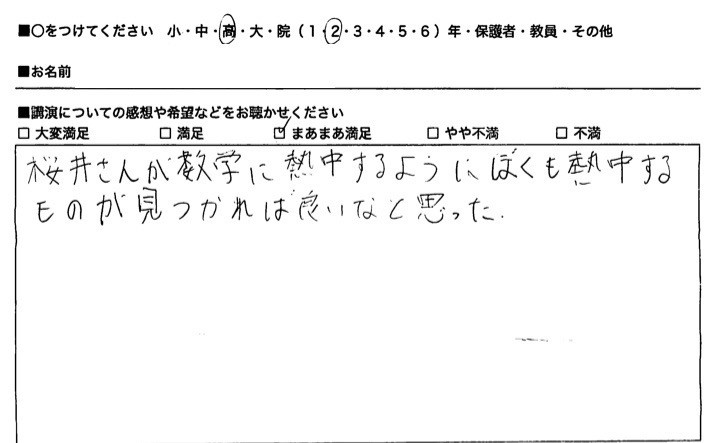 ■○をつけてください 小・中・高・大・院（1・2・3・4・5・6）年・保護者・教員・その他
■お名前
■講演についての感想や希望などをお聴かせください
□ 大変満足 □ 満足 ☑ まあまあ満足 □ やや不満 □ 不満
桜井さんが数学に熱中するようにぼくも熱中する
ものが見つかれば良いなと思った.